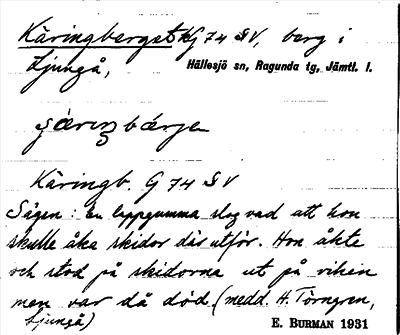 Käringberget KG 74 SV, berg i
Ljungå,
Hällesjö sn, Ragunda tg, Jämtl. l.
Käringb. G 74 SV
Sägen: En lappgumma slog vad att hon
skulle åka skidor där utför. Hon åkte
och stod på skidorna ut på viken
men var då död (medd. H. Törngren,
Ljungå)
E. BURMAN 1931